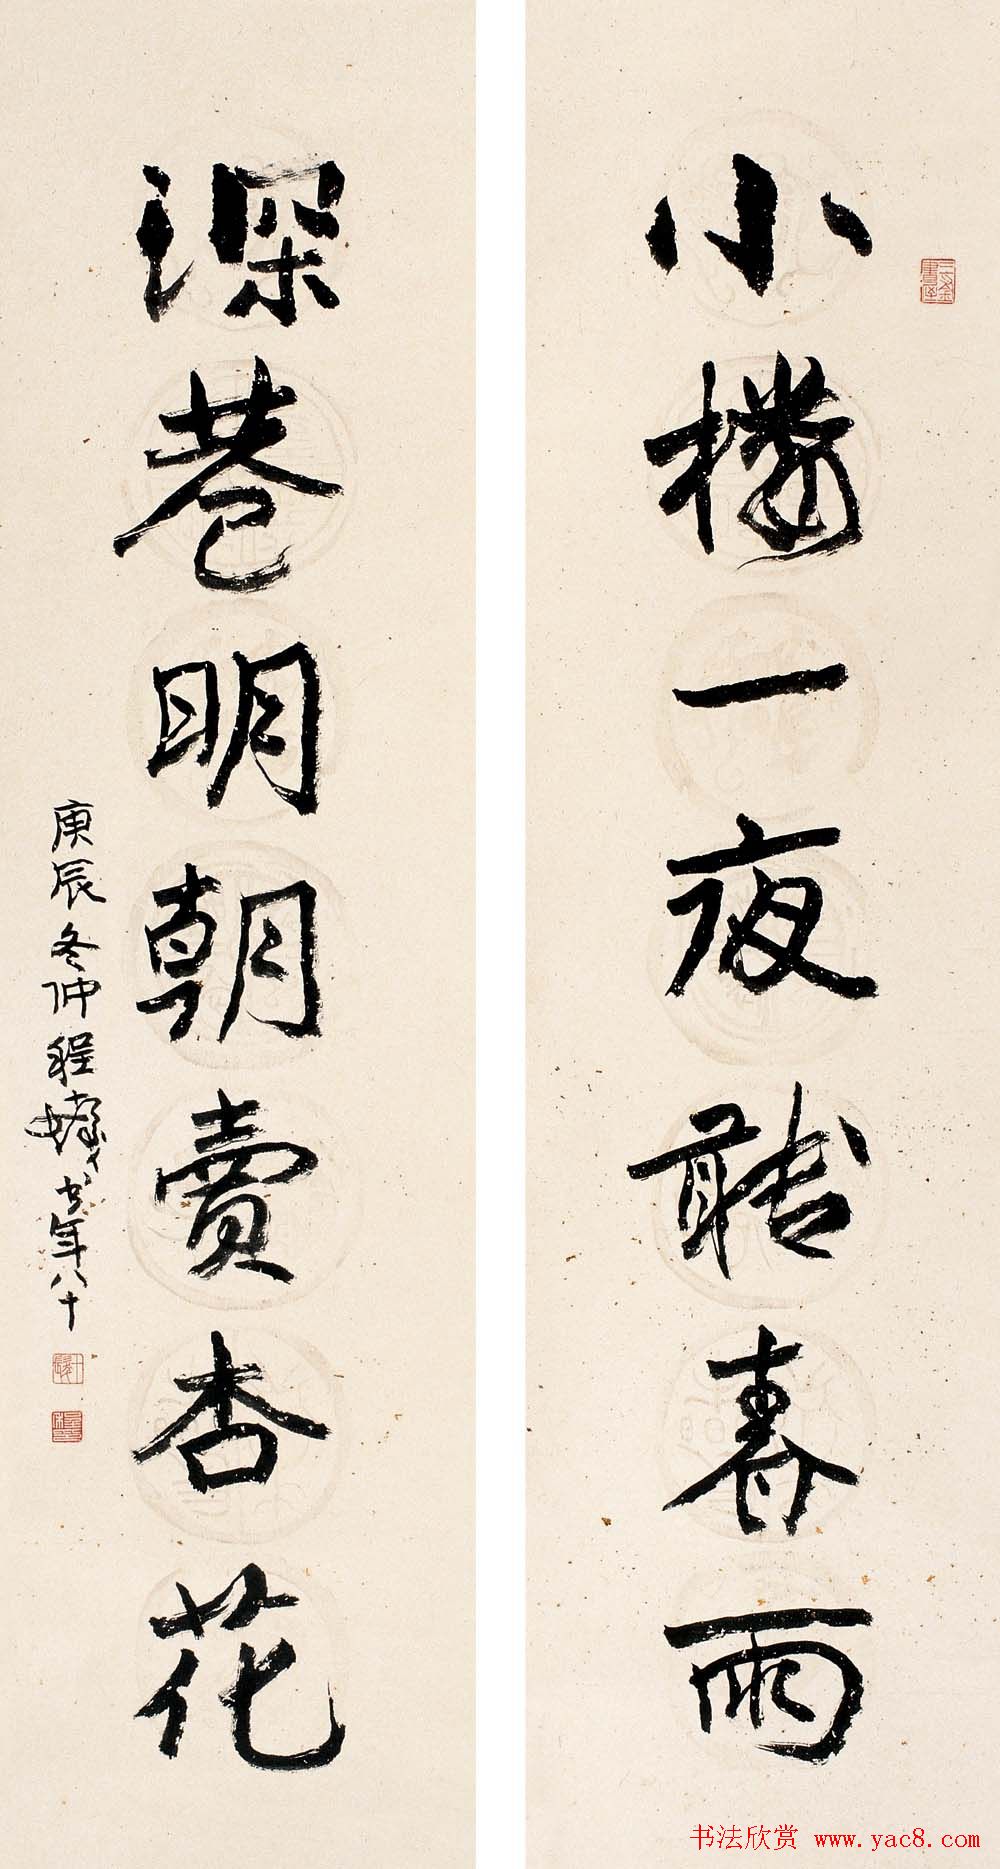 小樓一夜聽春雨
三釜書屋
深巷明朝賣杏花
庚辰冬仲程十髮書年八十
十髮
书法欣赏 www.yac8.com